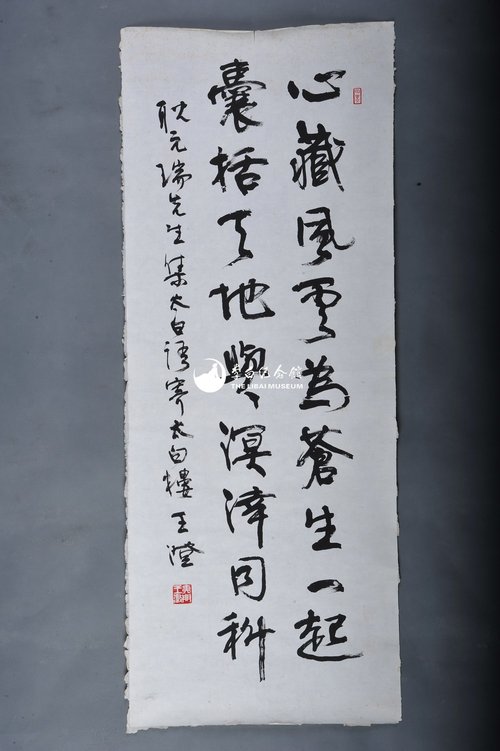 心藏風雲為蒼生一起
囊括天地與溟涬同科
耿元瑞先生集太白語寄太白樓 王澄
李白纪念馆
THE LIBAI MUSEUM